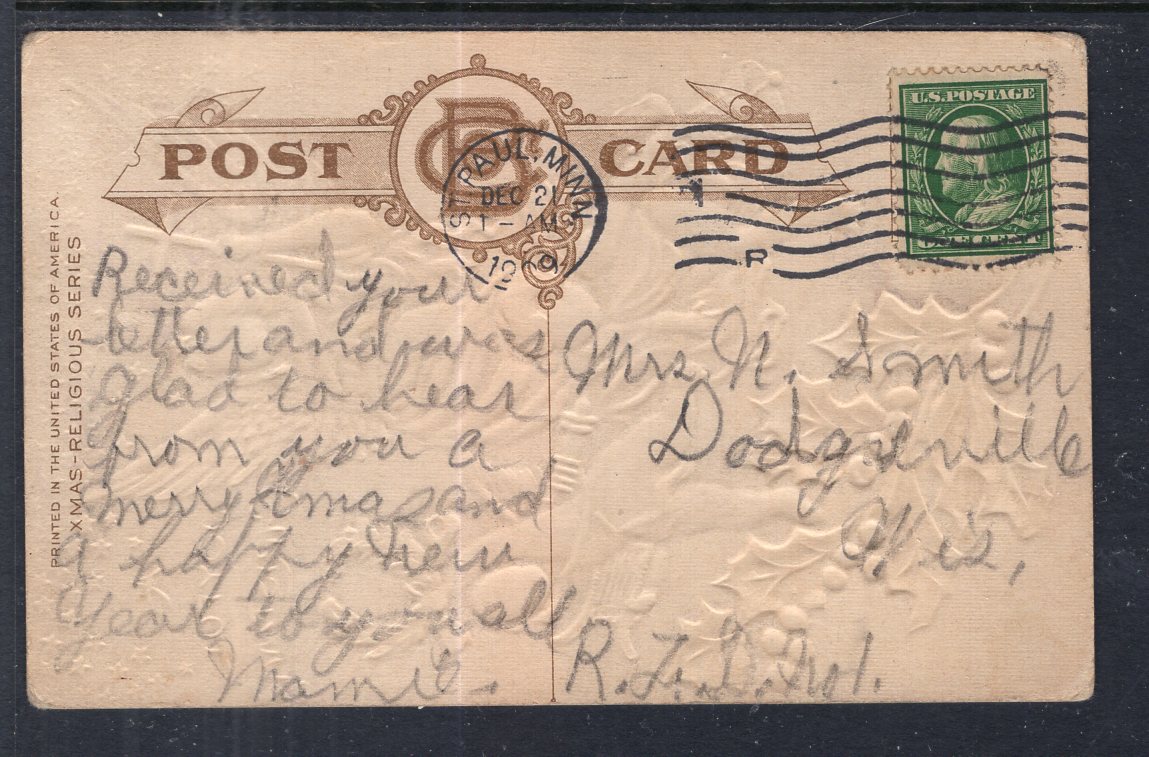 POST CARD
U.S. POSTAGE
ST. PAUL, MINN.
DEC 21
1 - AM
1909
R
PRINTED IN THE UNITED STATES OF AMERICA
XMAS-RELIGIOUS SERIES
Received your
letter and was
glad to hear
from you a
merry xmas and
a happy new
year to you all
Mamie.
Mrs. N. Smith
Dodgeville
Wis,
R.F.D. No 1.